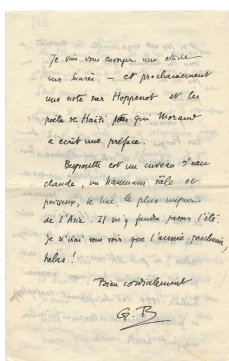 Je vais vous envoyer une étude
sur Barrès — et prochainement
une note sur Hoppenot et les
poètes de Haïti pour qui Morand
a écrit une préface.
Beyrouth est un cuveau d'eau
chaude, un hammam sale et
poisseux, le lieu le plus impur
de l'Asie. Il m'y faudra passer l'été.
Je n'irai vous voir que l'année prochaine,
hélas !
Bien cordialement
G. B